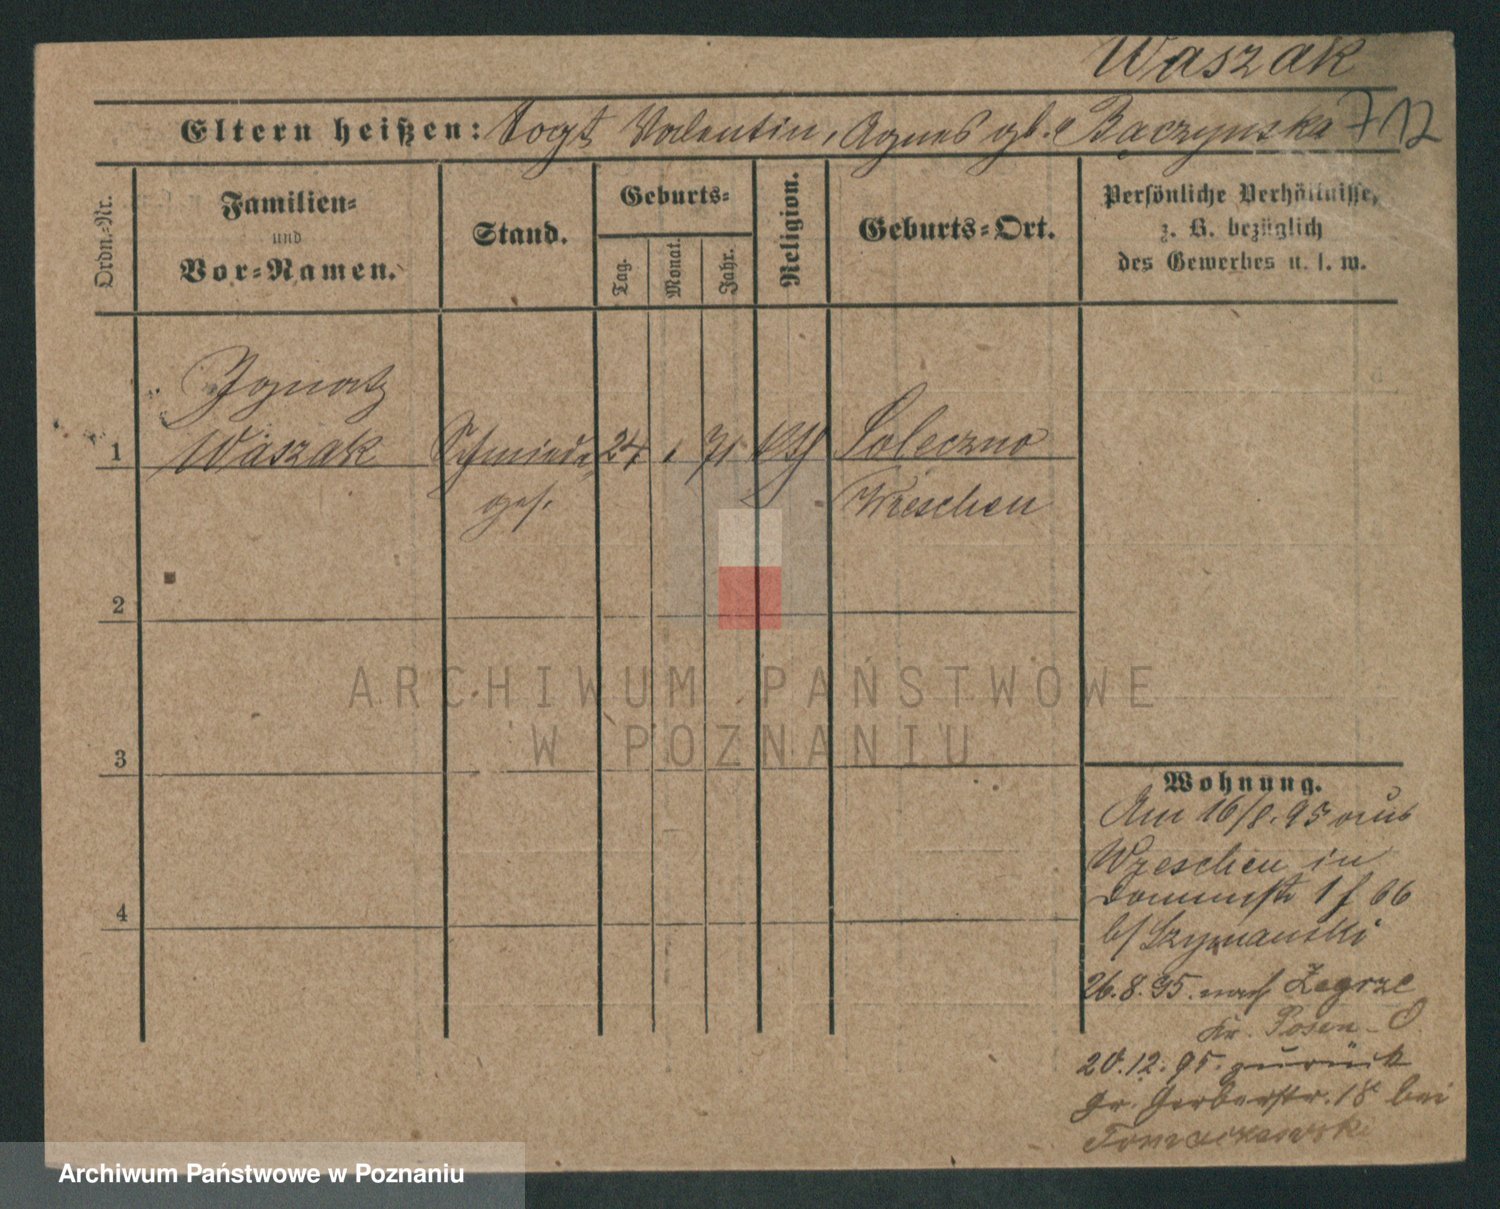 Waszak
Eltern heißen: Vogt Valentin, Agnes gb. Bączynska 712
Ordn.-Nr.
Familien-
und
Vor-Namen.
Stand.
Geburts-
Tag.
Monat.
Jahr.
Religion.
Geburts-Ort.
Persönliche Verhältnisse,
z. B. bezüglich
des Gewerbes u. s. w.
Ignatz
1 Waszak Schmiede 24 1 71 kth Soleczno
ges. Wreschen
2
ARCHIWUM PAŃSTWOWE
W POZNANIU
3
4
Wohnung.
Am 16/8. 95 aus
Wreschen in
Dominstr 1 f 66
b/ Szymanski
26.8.95. nach Zegrze
Kr. Posen-O
20.12.95. zurück
gr. Gerberstr. 18 bei
Tomaszewski
Archiwum Państwowe w Poznaniu